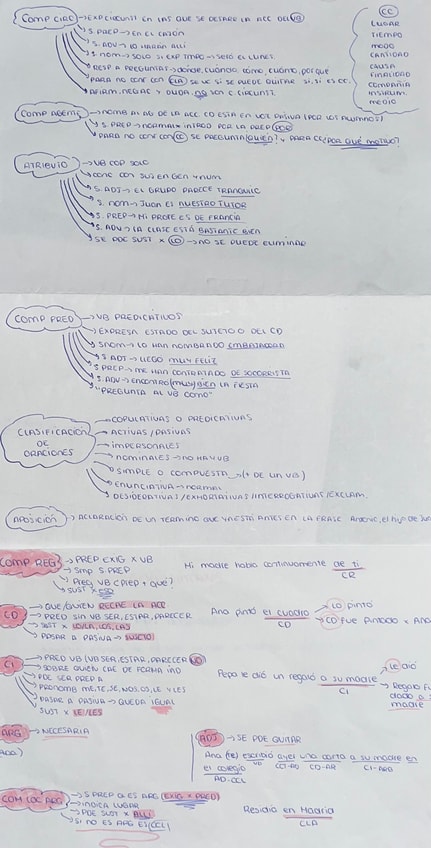 COMP CIRC → EXP CIRCUNST EN LAS QUE SE DESARR LA ACC DEL VB
S. PREP → EN EL CAJÓN
S. ADV → LO HARÁN ALLÍ
S. NOM → SOLO SI EXP TMPO → SERÁ EL LUNES.
RESP A PREGUNTAS → dónde, cuándo, cómo, cuánto, por que
PARA NO CONF CON CLA SE VE SI SE PUEDE QUITAR SI, SI ES CC.
AFIRM, NEGAC Y DUDA NO SON C. CIRCUNST.
CC
LUGAR
TIEMPO
MODO
CANTIDAD
CAUSA
FINALIDAD
COMPAÑIA
INSTRUM
MEDIO
COMP AGENT → NOMB AL AG DE LA ACC. CD ESTÁ EN VOZ PASIVA (POR LOS ALUMNOS)
S. PREP → NORMALM INTROD POR LA PREP POR
PARA NO CONF CON CC SE PREGUNTA ¿QUIÉN? Y PARA CC ¿POR QUÉ MOTIVO?
ATRIBUTO → VB COP SOLO
CONC CON SUJ EN GEN Y NUM
S. ADJ → EL GRUPO PARECE TRANQUILO
S. NOM → JUAN ES NUESTRO TUTOR
S. PREP → MI PROFE ES DE FRANCIA
S. ADV → LA CLASE ESTÁ BASTANTE BIEN
SE PDE SUST X LO → NO SE PUEDE ELIMINAR
COMP PRED → VB PREDICATIVOS
EXPRESA ESTADO DEL SUJETO O DEL CD
SNOM → LO HAN NOMBRADO EMBAJADOR
S. ADJ → LLEGÓ MUY FELIZ
S PREP → ME HAN CONTRATADO DE SOCORRISTA
S. ADV → ENCONTRÓ (MUY) BIEN LA FIESTA
"PREGUNTA AL VB CÓMO"
CLASIFICACIÓN DE ORACIONES
COPULATIVAS O PREDICATIVAS
ACTIVAS / PASIVAS
IMPERSONALES
NOMINALES → NO HAY VB
SIMPLE O COMPUESTA → (+ DE UN VB)
ENUNCIATIVA → NORMAL
DESIDERATIVAS / EXHORTATIVAS / INTERROGATIVAS / EXCLAM.
APOSICIÓN → ACLARACIÓN DE UN TÉRMINO QUE YA ESTÁ ANTES EN LA FRASE Antonio, el hijo de
COMP REG → PREP EXIG X VB
Smp S PREP
Preg VB cPREP + que?
SUST X ESO
Mi madre habla continuamente de ti
CR
CD → QUE/QUIEN RECAE LA ACC
PRED SIN VB SER, ESTAR, PARECER
SUST X LO/LA, LOS, LAS
PASAR A PASIVA → SUJETO
Ana pintó el cuadro → LO pintó
CD → CD fue pintado x Ana
CI → PRED VB (VB SER, ESTAR, PARECER NO)
SOBRE QUIEN CAE DE FORMA IND
PDE SER PREP A
PRONOMB ME, TE, SE, NOS, OS, LE Y LES
PASAR A PASIVA → QUEDA IGUAL
SUST X LE/LES
Pepa le dió un regalo a su madre → le dió
CI
Regalo fue
dado a su
madre
ARG → NECESARIA
ADJ → SE PDE QUITAR
Ana (le) escribió ayer una carta a su madre en
el colegio
VB CCT-AD CD-AR CI-ARG
AD-CCL
COM LOC ARG → S PREP Q ES ARG (EXIG X PRED)
INDICA LUGAR
PDE SUST X ALLÍ
SI NO ES ARG ES (CCL)
Residía en Madrid
CLA